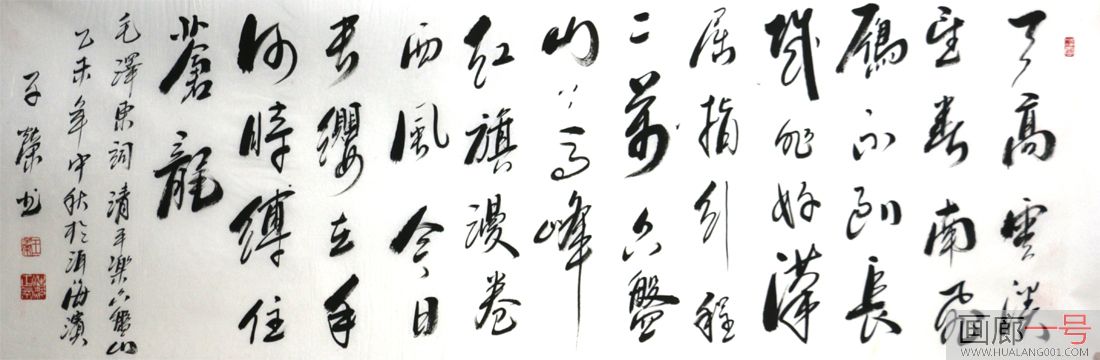 天高雲淡
望断南飛
雁不到長
城非好漢
屈指行程
二萬六盤
山上高峰
红旗漫卷
西風今日
長纓在手
何時縛住
蒼龍
毛澤東詞清平樂六盤山
乙未年中秋於洱海濱
子榮书
画廊一号
WWW.HUALANG001.COM